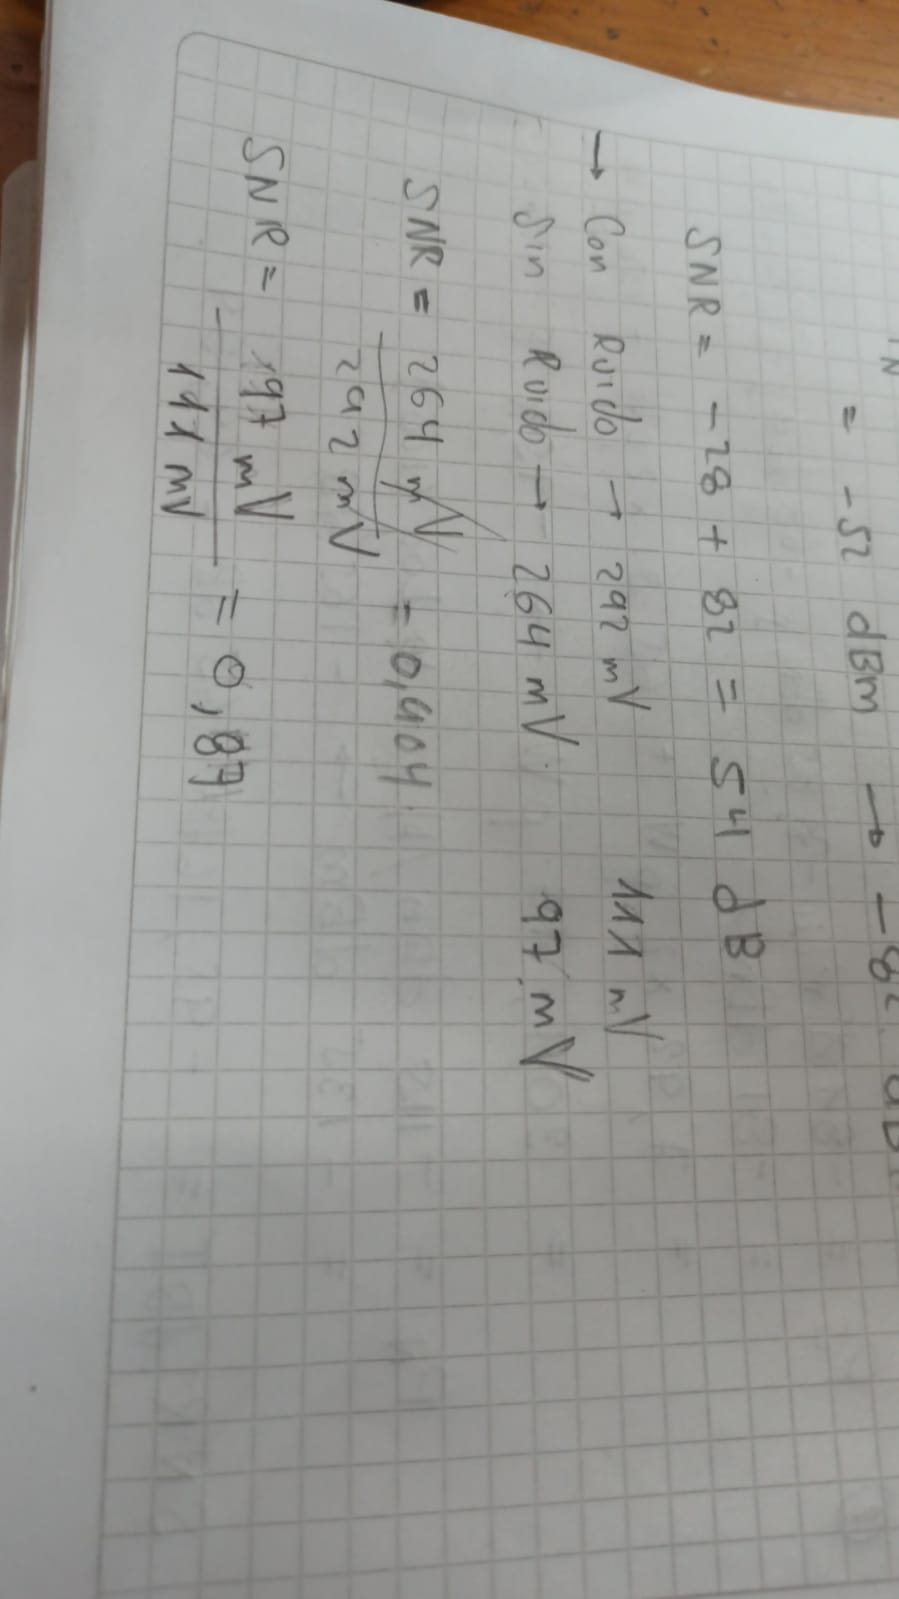 N = -52 dBm → -82 dB
SNR = -28 + 82 = 54 dB
→ Con Ruido → 292 mV 111 mV
Sin Ruido → 264 mV 97 mV
SNR = 264 mV
292 mV
= 0,904
SNR = 97 mV
111 mV
= 0,87